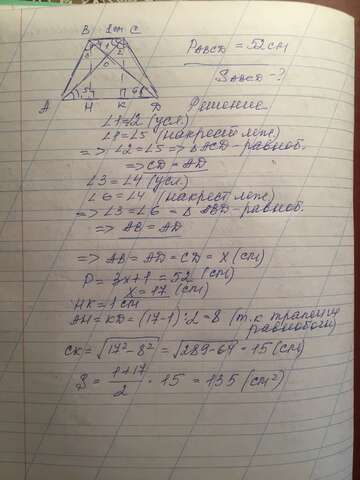 B 1cm C
P ABCD = 52 см
S ABCD - ?
A H K D
Решение
∠1=∠2 (усл)
∠1=∠5 (накрест леж)
=> ∠2=∠5 => △ACD-равноб.
=> CD = AD
∠3=∠4 (усл)
∠6=∠4 (накрест леж)
=> ∠3=∠6 = △ABD-равноб.
=> AB = AD
=> AB = AD = CD = X (см)
P = 3x+1 = 52 (см)
X = 17 (см)
HK = 1 см
AH = KD = (17-1):2 = 8 (т.к трапеция
равнобокая)
CK = √17²-8² = √289-64 = 15 (см)
S = 1+17/2 · 15 = 135 (см²)